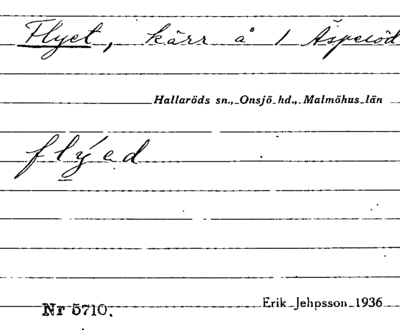 Flyet, kärr å 1 Äsperöd
Hallaröds sn., Onsjö hd., Malmöhus län
flýed
Nr 5710.
Erik Jehpsson 1936